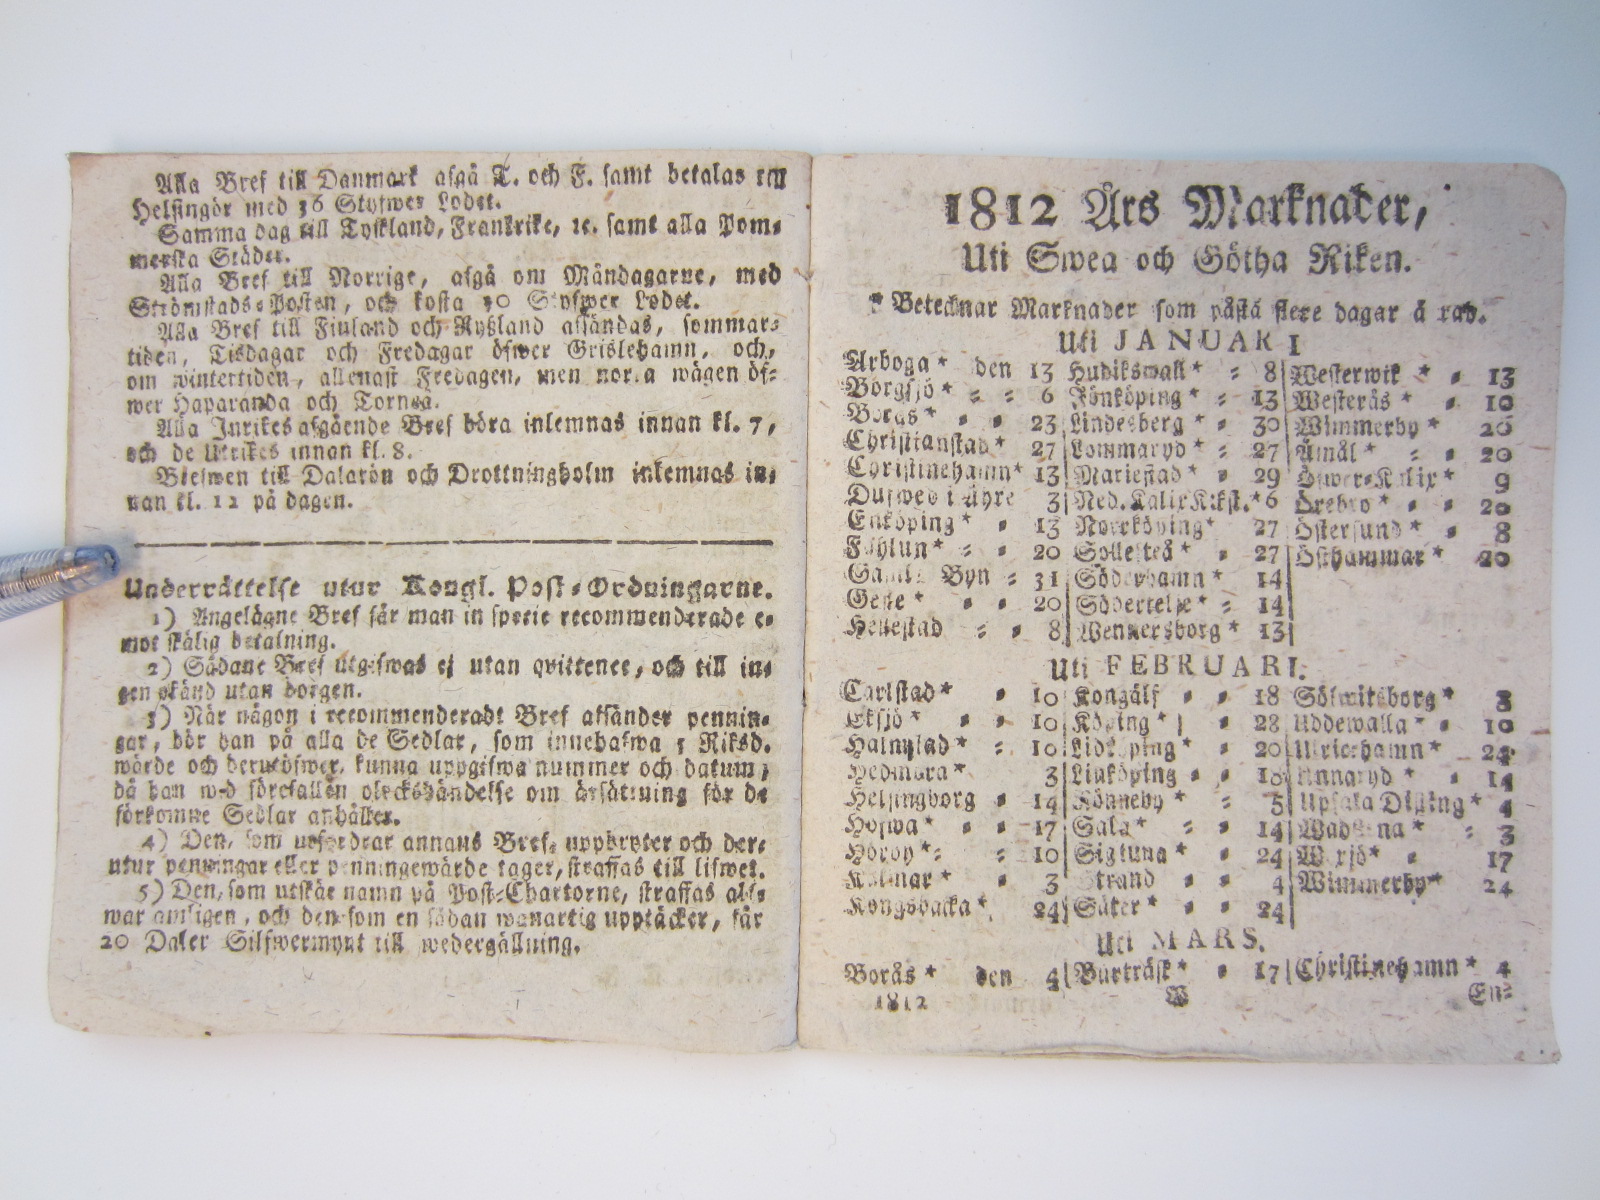 Alla Bref till Danmark afgå T. och F. samt betalas till
Helsingör med 36 Styfwer Lodet.
Samma dag till Tyskland, Frankrike, ꝛc. samt alla Pom-
merska Städer.
Alla Bref till Norrige, afgå om Måndagarne, med
Strömstads-Posten, och kosta 30 Styfwer Lodet.
Alla Bref till Finland och Ryßland afsändas, sommar-
tiden, Tisdagar och Fredagar öfwer Grislehamn, och,
om wintertiden, allenast Fredagen, men norra wägen öf-
wer Haparanda och Torneå.
Alla Inrikes afgående Bref böra inlemnas innan kl. 7,
och de Utrikes innan kl. 8.
Brefwen till Dalarön och Drottningholm inlemnas in-
nan kl. 12 på dagen.
Underrättelse utur Kongl. Post-Ordningarne.
1) Angelägne Bref får man in specie recommenderade e-
mot skälig betalning.
2) Sådane Bref utgifwas ej utan qvittence, och till in-
gen okänd utan borgen.
3) När någon i recommenderadt Bref afsänder pennin-
gar, bör han på alla de Sedlar, som innehafwa 3 Riksd.
wärde och derutöfwer, kunna uppgifwa nummer och datum,
då han wid förefallen olyckshändelse om ärsättning för de
förkomne Sedlar anhåller.
4) Den, som utfordrar annans Bref, uppbryter och der-
utur penningar eller penningewärde tager, straffas till lifwet.
5) Den, som utskär namn på Post-Chartorne, straffas alf-
waramligen, och den som en sådan wanartig upptäcker, får
20 Daler Silfwermynt till wedergällning.
1812 Års Marknader,
Uti Swea och Götha Riken.
* Betecknar Marknader som påstå flere dagar å rad.
Uti JANUARI
Arboga * den 13 Hudikswall * 8 Westerwik * 13
Borgsjö * 6 Jönköping * 13 Westerås * 10
Borås * 23 Lindesberg * 30 Wimmerby * 20
Christianstad * 27 Lommaryd * 27 Åmål * 20
Christinehamn * 13 Mariestad * 29 Öfwer-Kalix * 9
Dufwed i Åhre 3 Ned. Kalix K:kst. * 6 Örebro * 20
Enköping * 13 Norrköping * 27 Östersund * 8
Fahlun * 20 Skellefteå * 27 Östhammar * 20
Gamla Byn 31 Söderhamn * 14
Gefle * 20 Södertelje * 14
Hellestad 8 Wennersborg * 13
Uti FEBRUARI.
Carlstad * 10 Kongälf 18 Sölwitsborg * 3
Eksjö * 10 Köping * 28 Uddewalla * 10
Halmstad * 10 Lidköping * 20 Ulricehamn * 24
Hedmora * 3 Linköping Unnaryd * 14
Helsingborg 14 Rönneby * 5 Upsala Disting * 4
Hofwa * 17 Sala * 14 Wadstena * 3
Hörby * 10 Sigtuna * 24 Wexjö * 17
Kalmar * 3 Strand 4 Wimmerby * 24
Kongsbacka * 24 Säter * 24
Uti MARS.
Borås * den 4 Burträsk * 17 Christinehamn * 4
1812 W En-